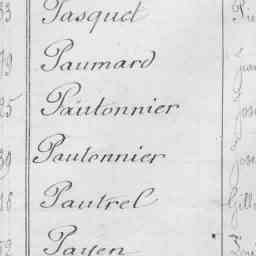 33 Pasquet
79 Paumard
25 Pautonnier
39 Pautonnier
Pautrel Gill
Payen